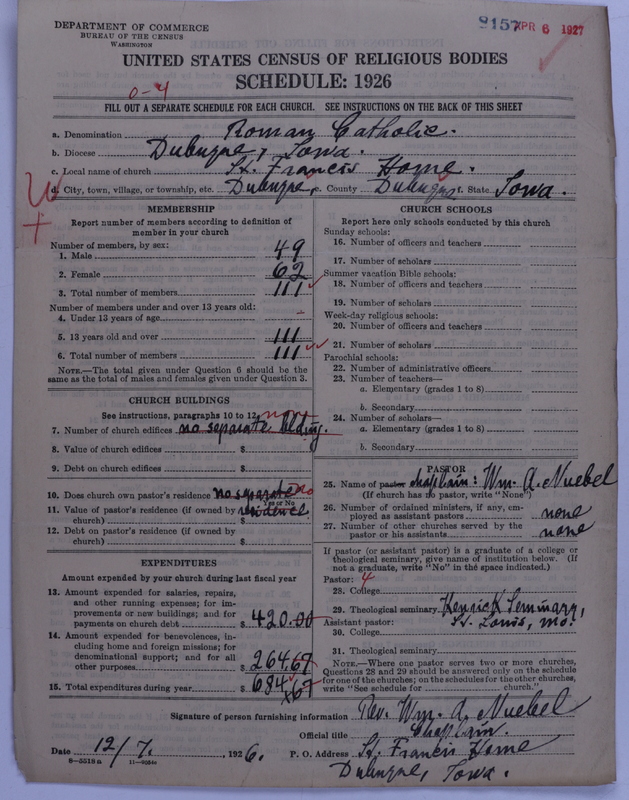 DEPARTMENT OF COMMERCE
BUREAU OF THE CENSUS
WASHINGTON
8157 APR 6 1927
UNITED STATES CENSUS OF RELIGIOUS BODIES
SCHEDULE: 1926
0-4
FILL OUT A SEPARATE SCHEDULE FOR EACH CHURCH. SEE INSTRUCTIONS ON THE BACK OF THIS SHEET
a. Denomination Roman Catholic.
b. Diocese Dubuque, Iowa.
c. Local name of church St. Francis Home.
d. City, town, village, or township, etc. Dubuque, e. County Dubuque f. State Iowa.
MEMBERSHIP
Report number of members according to definition of
member in your church
Number of members, by sex:
1. Male 49
2. Female 62
3. Total number of members 111
Number of members under and over 13 years old:
4. Under 13 years of age -
5. 13 years old and over 111
6. Total number of members 111
NOTE.—The total given under Question 6 should be the
same as the total of males and females given under Question 3.
CHURCH BUILDINGS
See instructions, paragraphs 10 to 12
7. Number of church edifices no separate blding.
8. Value of church edifices $
9. Debt on church edifices $
10. Does church own pastor's residence no separate no
Yes or No
11. Value of pastor's residence (if owned by residence
church) $
12. Debt on pastor's residence (if owned by
church) $
EXPENDITURES
Amount expended by your church during last fiscal year
13. Amount expended for salaries, repairs,
and other running expenses; for im-
provements or new buildings; and for
payments on church debt $ 420.00
14. Amount expended for benevolences, in-
cluding home and foreign missions; for
denominational support; and for all
other purposes $ 264.67
15. Total expenditures during year $ 684 67
CHURCH SCHOOLS
Report here only schools conducted by this church
Sunday schools:
16. Number of officers and teachers
17. Number of scholars
Summer vacation Bible schools:
18. Number of officers and teachers
19. Number of scholars
Week-day religious schools:
20. Number of officers and teachers
21. Number of scholars
Parochial schools:
22. Number of administrative officers
23. Number of teachers—
a. Elementary (grades 1 to 8)
b. Secondary
24. Number of scholars—
a. Elementary (grades 1 to 8)
b. Secondary
PASTOR
25. Name of pastor chaplain: Wm. A. Nuebel
(If church has no pastor, write "None")
26. Number of ordained ministers, if any, em-
ployed as assistant pastors none
27. Number of other churches served by the
pastor or his assistants none
If pastor (or assistant pastor) is a graduate of a college or
theological seminary, give name of institution below. (If
not a graduate, write "No" in the space indicated.)
Pastor: 4
28. College
29. Theological seminary Kenrick Seminary,
Assistant pastor: St. Louis, Mo.
30. College
31. Theological seminary
NOTE.—Where one pastor serves two or more churches,
Questions 28 and 29 should be answered only on the schedule
for one of the churches; on the schedules for the other churches,
write "See schedule for church."
Signature of person furnishing information Rev. Wm. A. Nuebel
Official title Chaplain.
Date 12/7. , 1926. P. O. Address St. Francis Home
8-5518 a
Dubuque, Iowa.